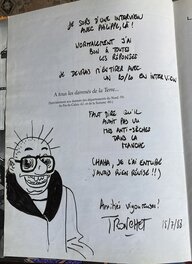 JE SORS D'UNE INTERVIEW
AVEC PHILIPPE, LÀ !
NORMALEMENT J'AI
BON À TOUTES
LES RÉPONSES
JE DEVRAIS M'EN TIRER AVEC
UN 20/20 EN INTERVIEW
A tous les damnés de la Terre...
FAUT DIRE QU'IL
AVAIT PAS VU
MES ANTI-SÈCHES
DANS LA
MANCHE
(HAHA, JE L'AI ENTUBÉ
J'AVAIS RIEN RÉVISÉ !!)
Amitiés Vigoureuses !
TRONCHET
15/7/88